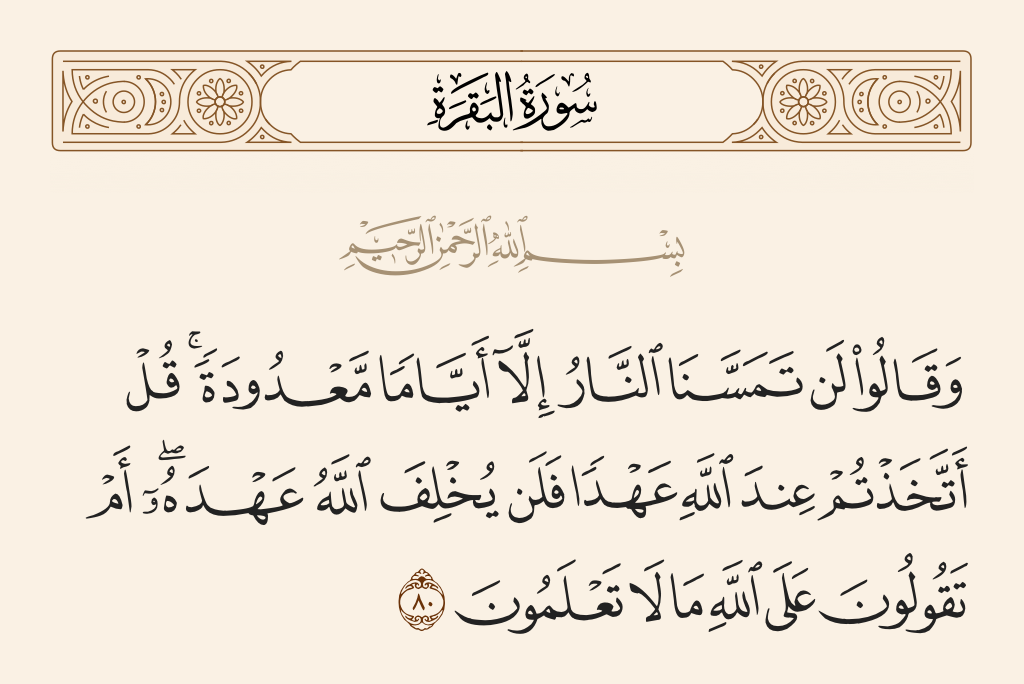 سُورَةُ البَقَرَةِ
بِسْمِ ٱللَّهِ ٱلرَّحْمَٰنِ ٱلرَّحِيمِ
وَقَالُوا۟ لَن تَمَسَّنَا ٱلنَّارُ إِلَّآ أَيَّامًا مَّعْدُودَةً ۚ قُلْ
أَتَّخَذْتُمْ عِندَ ٱللَّهِ عَهْدًا فَلَن يُخْلِفَ ٱللَّهُ عَهْدَهُۥٓ ۖ أَمْ
تَقُولُونَ عَلَى ٱللَّهِ مَا لَا تَعْلَمُونَ ٨٠